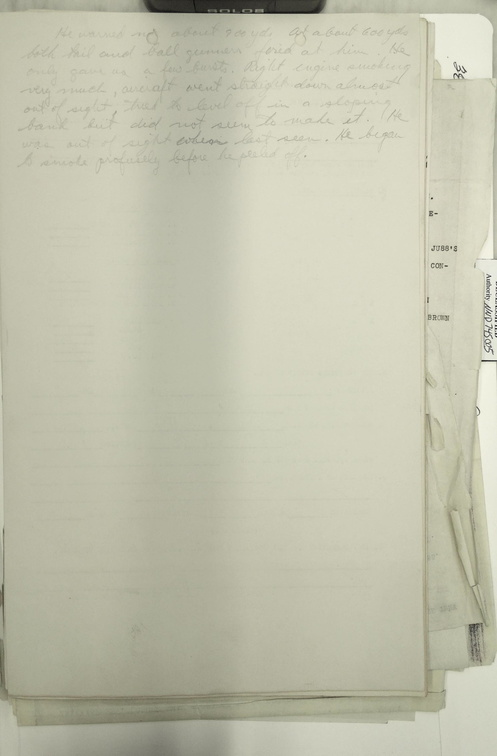 He warned me about 900 yds At about 600 yds
both tail and ball gunners fired at him. He
only gave us a few bursts. Right engine smoking
very much, aircraft went straight down almost
out of sight tried to level off in a sloping
bank but did not seem to make it. (He
was out of sight when last seen. He began
to smoke profusely before he peeled off.
E-
JU88'S
CON-
BROWN
Authority NND 745005